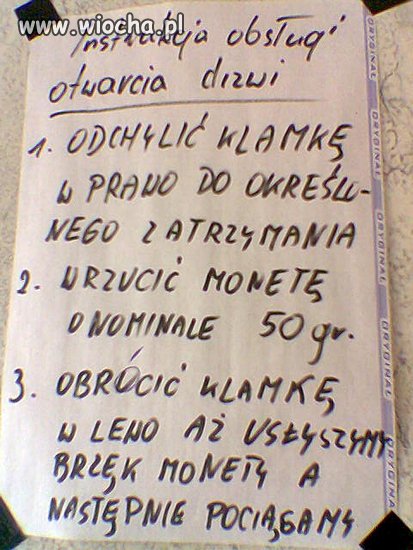 www.wiocha.pl
Instrukcja obsługi
otwarcia drzwi
1. ODCHYLIĆ KLAMKĘ
W PRAWO DO OKREŚLO-
NEGO ZATRZYMANIA
2. WRZUCIĆ MONETĘ
O NOMINALE 50 gr.
3. OBRÓCIĆ KLAMKĘ
W LEWO AŻ USŁYSZYMY
BRZĘK MONETY A
NASTĘPNIE POCIĄGAMY
ORYGINAŁ
ORYGINAŁ
ORYGINAŁ
ORYGINAŁ
ORYGINAŁ